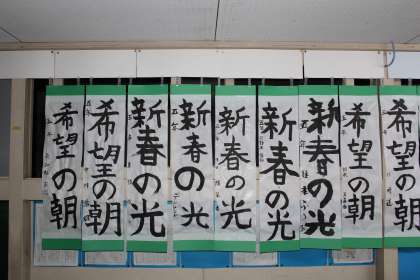 希望の朝
希望の朝
新春の光
新春の光
新春の光
新春の光
新春の光
希望の朝
希望の朝